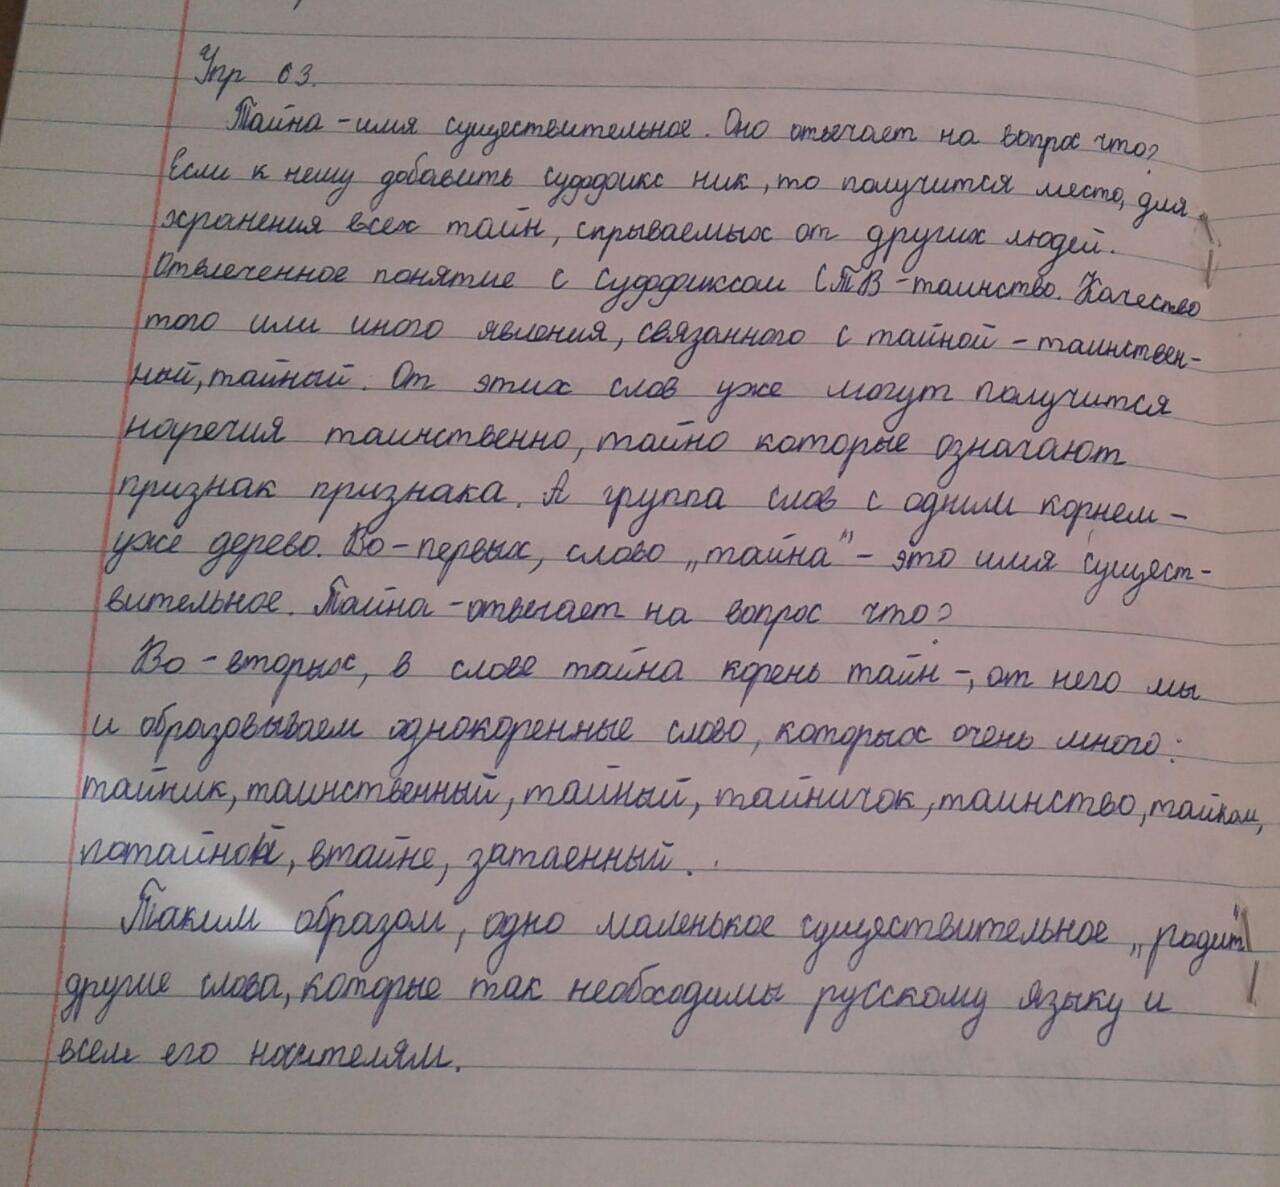 Упр 63.
Тайна - имя существительное. Оно отвечает на вопрос что?
Если к нему добавить суффикс ник, то получится место, для
хранения всех тайн, спрываемых от других людей.
Отвлеченное понятие с суффиксом СТВ - таинство. Качество
того или иного явления, связанного с тайной - таинствен-
ный, тайный. От этих слов уже могут получится
наречия таинственно, тайно которые означают
признак признака. А группа слов с одним корнем -
уже дерево. Во-первых, слово „тайна" - это имя сущест-
вительное. Тайна - отвечает на вопрос что?
Во-вторых, в слове тайна корень тайн-, от него мы
и образовываем однокоренные слово, которых очень много:
тайник, таинственный, тайный, тайничок, таинство, тайком,
потайной, втайне, затаенный.
Таким образом, одно маленькое существительное „родит"
другие слова, которые так необходимы русскому языку и
всем его носителям.